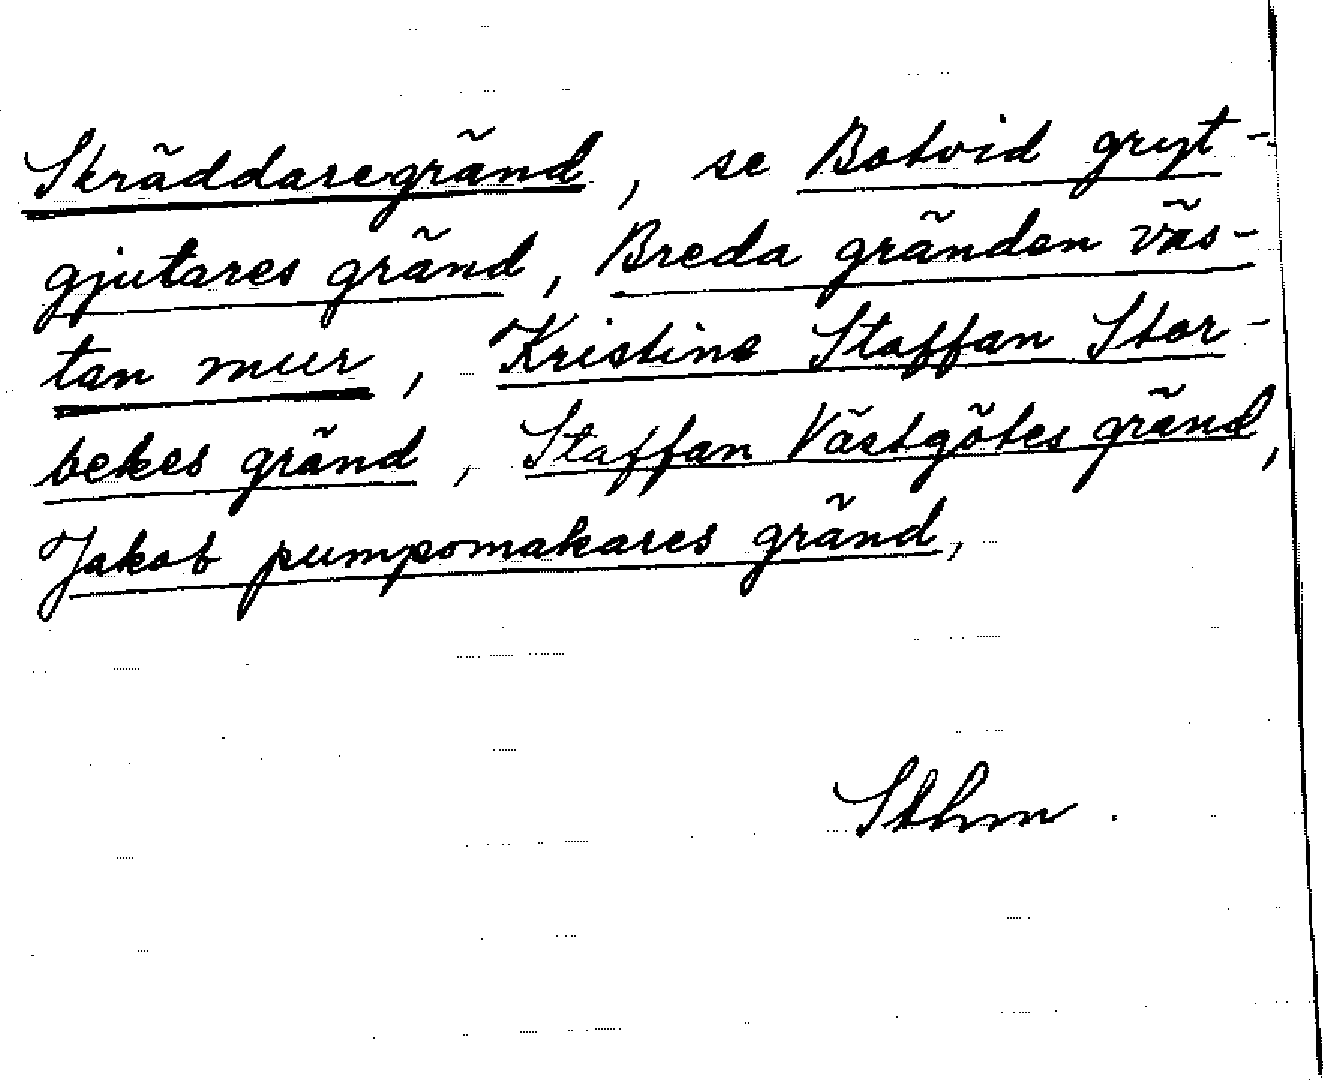 Skräddaregränd, se Botvid gryt-
gjutares gränd, Breda gränden väs-
tan mur, Kristine Staffan Stor-
bekes gränd, Staffan Västgötes gränd,
Jakob pumpomakares gränd,
Sthm.